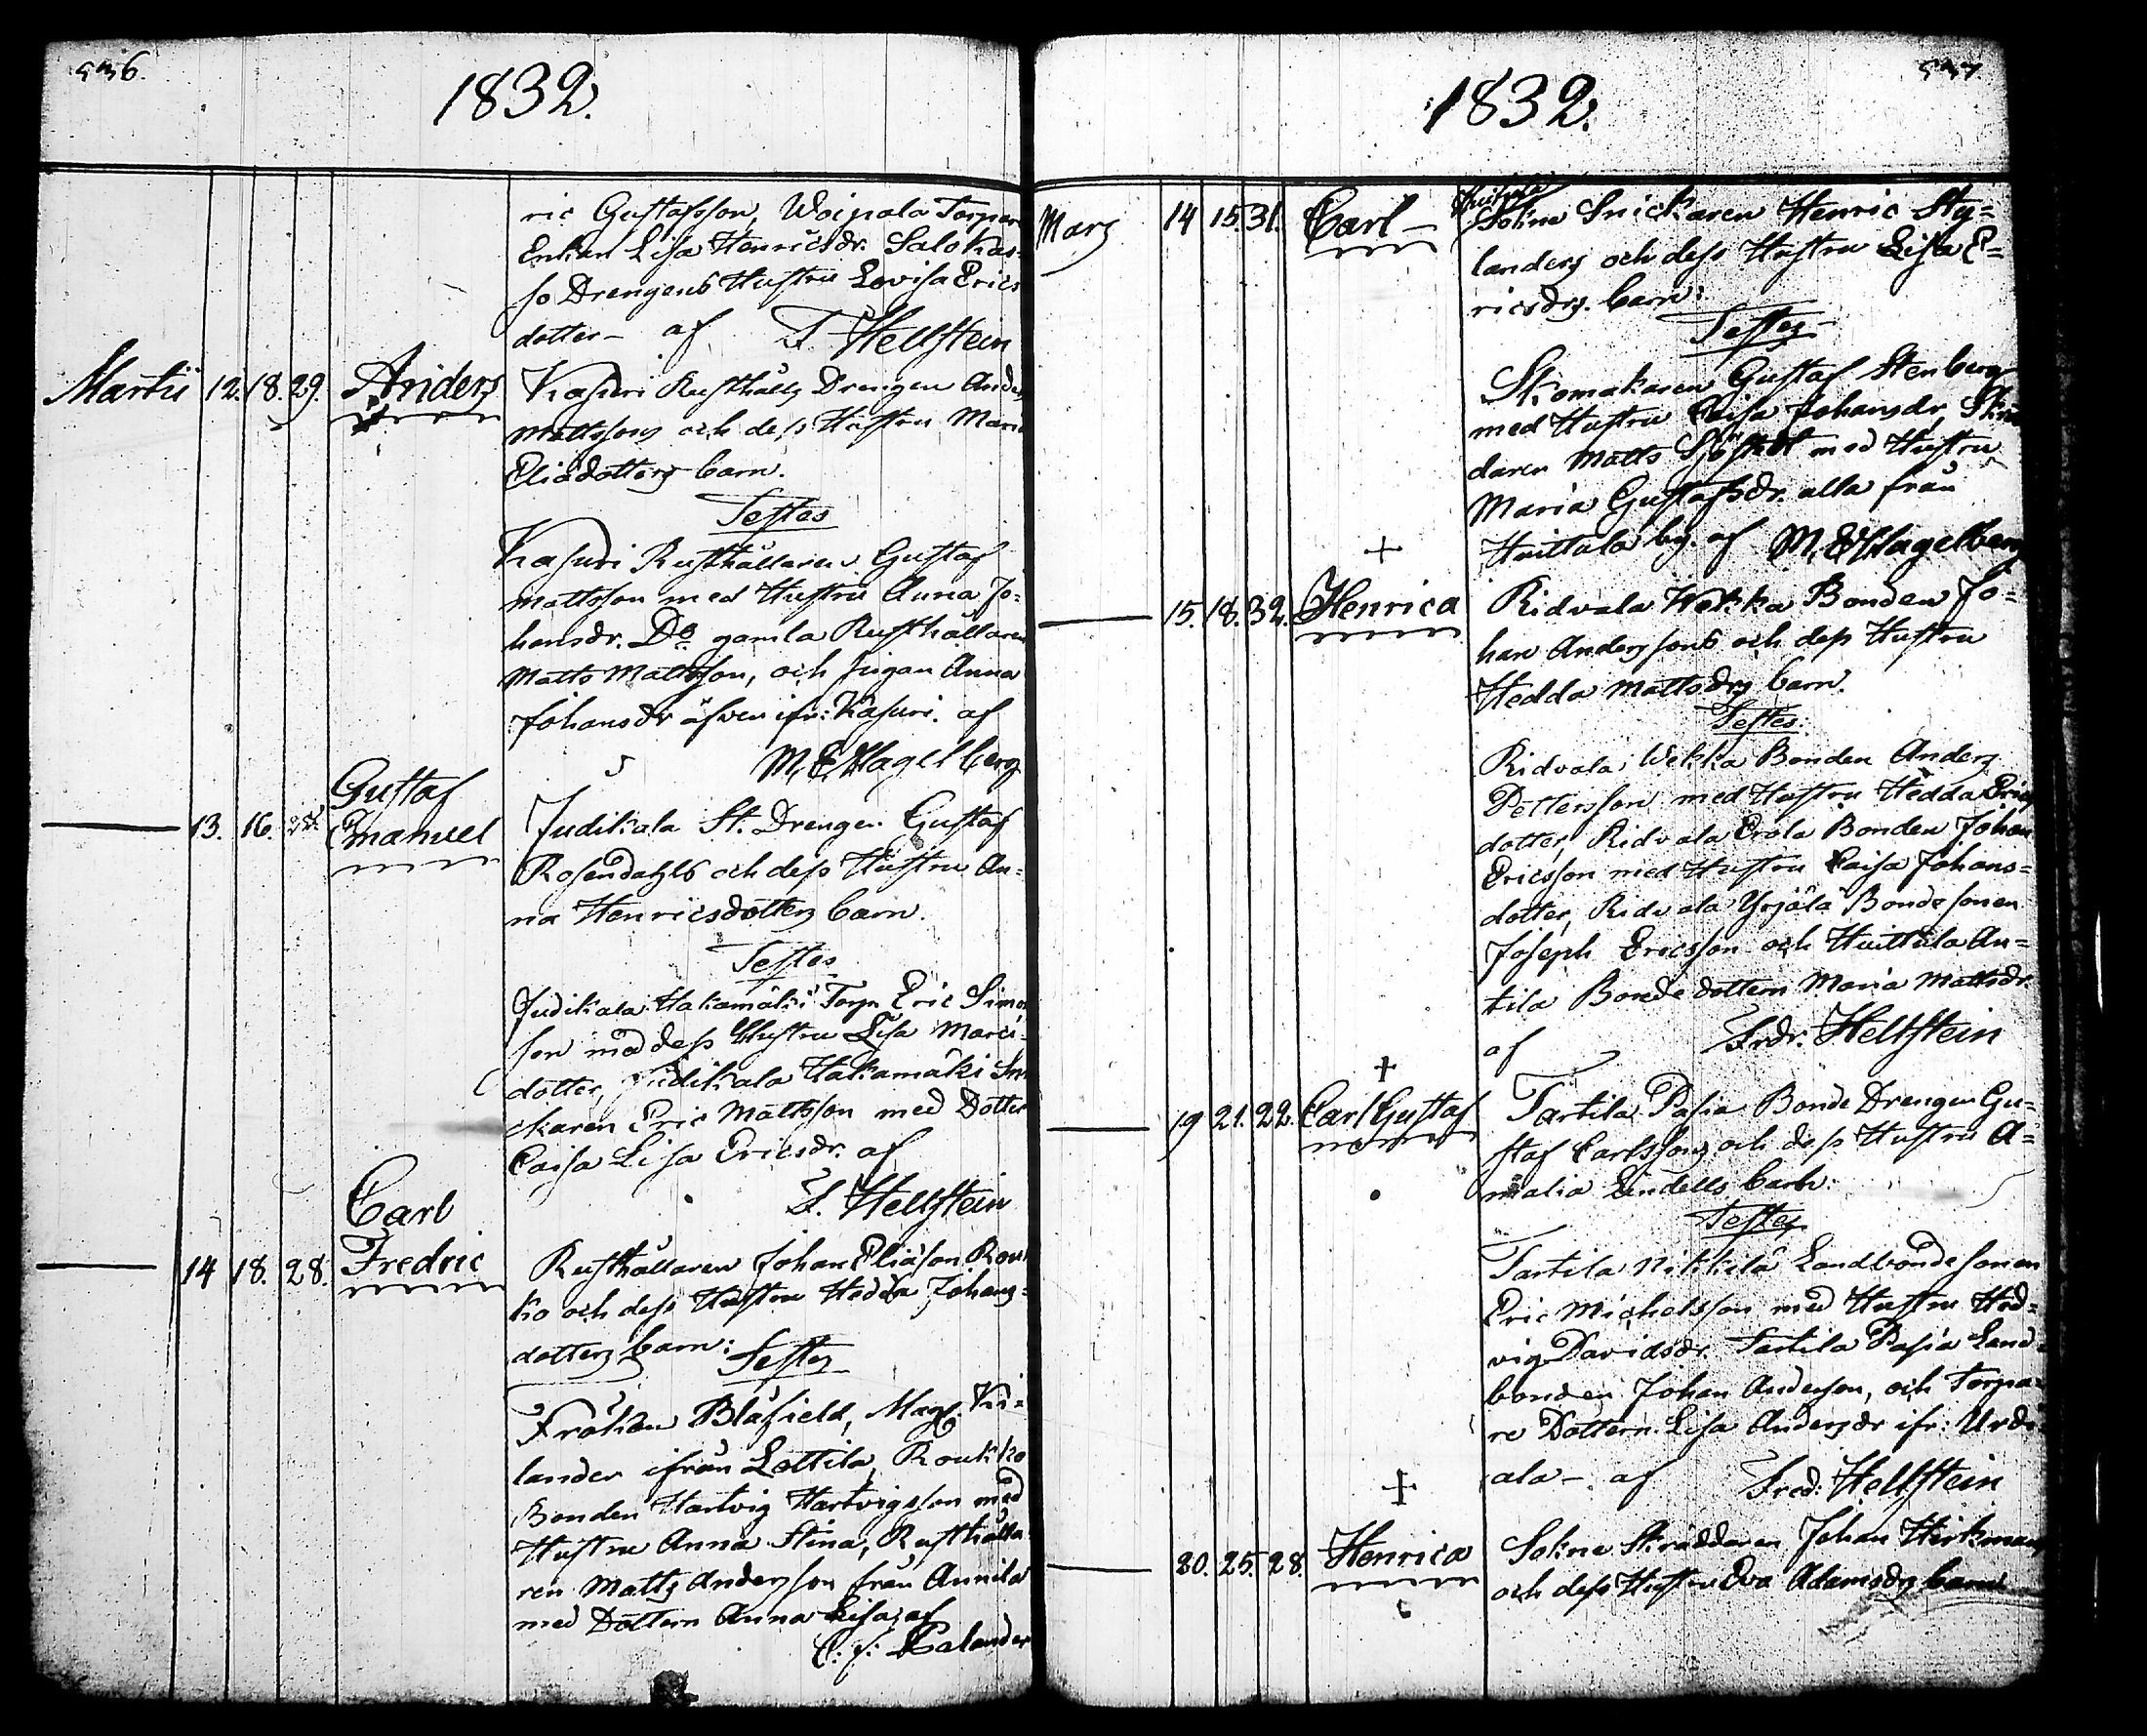 536.
1832.
ric Gustafsson, Woipala Torpare
Enkan Lisa Henricsdr. Salokas-
so Drengens Hustru Lovisa Erics
dotter – af F. Hellstein
Martii 12. 18. 29. Anders Kasuri Rusthålls Drengen Anders
Mattssons och dess Hustru Maria
Eliædotters barn.
Testes
Kasuri Rusthållaren Gustaf
Mattsson med Hustru Anna Jo-
hansdr. Do gamla Rusthållaren
Matts Mattsson, och pigan Anna
Johansdr äfven ifr: Kasuri. af
M. E. Hagelberg
Gustaf
13. 16. Emanuel Judikala St. Drengen Gustaf
Rosendahls och dess Hustru An-
na Henricsdotters barn.
Testes
Judikala Hakamäki Torp. Eric Simons
son med dess Hustru Lisa Marci
dotter, Judikala Hakamäki Sni
ckaren Eric Mattsson med Dotter
Caisa Lisa Ericsdr. af
F. Hellstein
Carl
14 18. 28. Fredric Rusthållaren Johan Eliæson Rouk
ko och dess Hustru Hedda Johans-
dotters barn: Testes
Fröken Blåfield, Mag. Ki-
lander ifrån Lottila, Roukko
Bonden Hartvig Hartvigsson med
Hustru Anna Stina, Rusthålla
ren Matts Andersson från Annila
med Dottern Anna Lisa; af
C: f: Calander
537
1832.
Mars 14 15. 31. Carl – Sokne Snickaren Henric Sty-
landers och dess Hustru Lisa E-
ricsdrs. barn:
Testes
Skomakaren Gustaf Stenberg
med Hustru Caisa Johansdr, Skräd
daren Matts Sjöstedt med Hustru
Maria Gustafsdr. alla från
Huittula by. af M. E. Hagelberg
15. 18. 32. Henrica Ridvala Wekka Bonden Jo-
han Anderssons och dess Hustru
Hedda Mattsdrs barn.
Testes:
Ridvala Wekka Bonden Anders
Pettersson med Hustru Hedda Erics
dotter, Ridvala Erola Bonden Johan
Ericsson med Hustru Caisa Johans-
dotter, Ridvala Yrjälä Bondesonen
Joseph Ericsson och Huittula An-
tila Bonde dottern Maria Mattsdr.
af Frdr. Hellstein
19 21. 22. Carl Gustaf Tartila Pasia Bonde Drengen Gu-
staf Carlssons och dess Hustru A-
malia Lindells barn:
Testes
Tartila Nikkilä Landbondesonen
Eric Michelsson med Hustru Hed-
vig Davidsdr. Tartila Pasia Land-
bonden Johan Anderson, och Torpa-
re Dottern Lisa Andersdr ifr: Urdi-
ala – af Fred: Hellstein
20. 25. 28. Henrica Sokne Skräddaren Johan Hirkmans
och dess Hustru Eva Adamsdrs barn